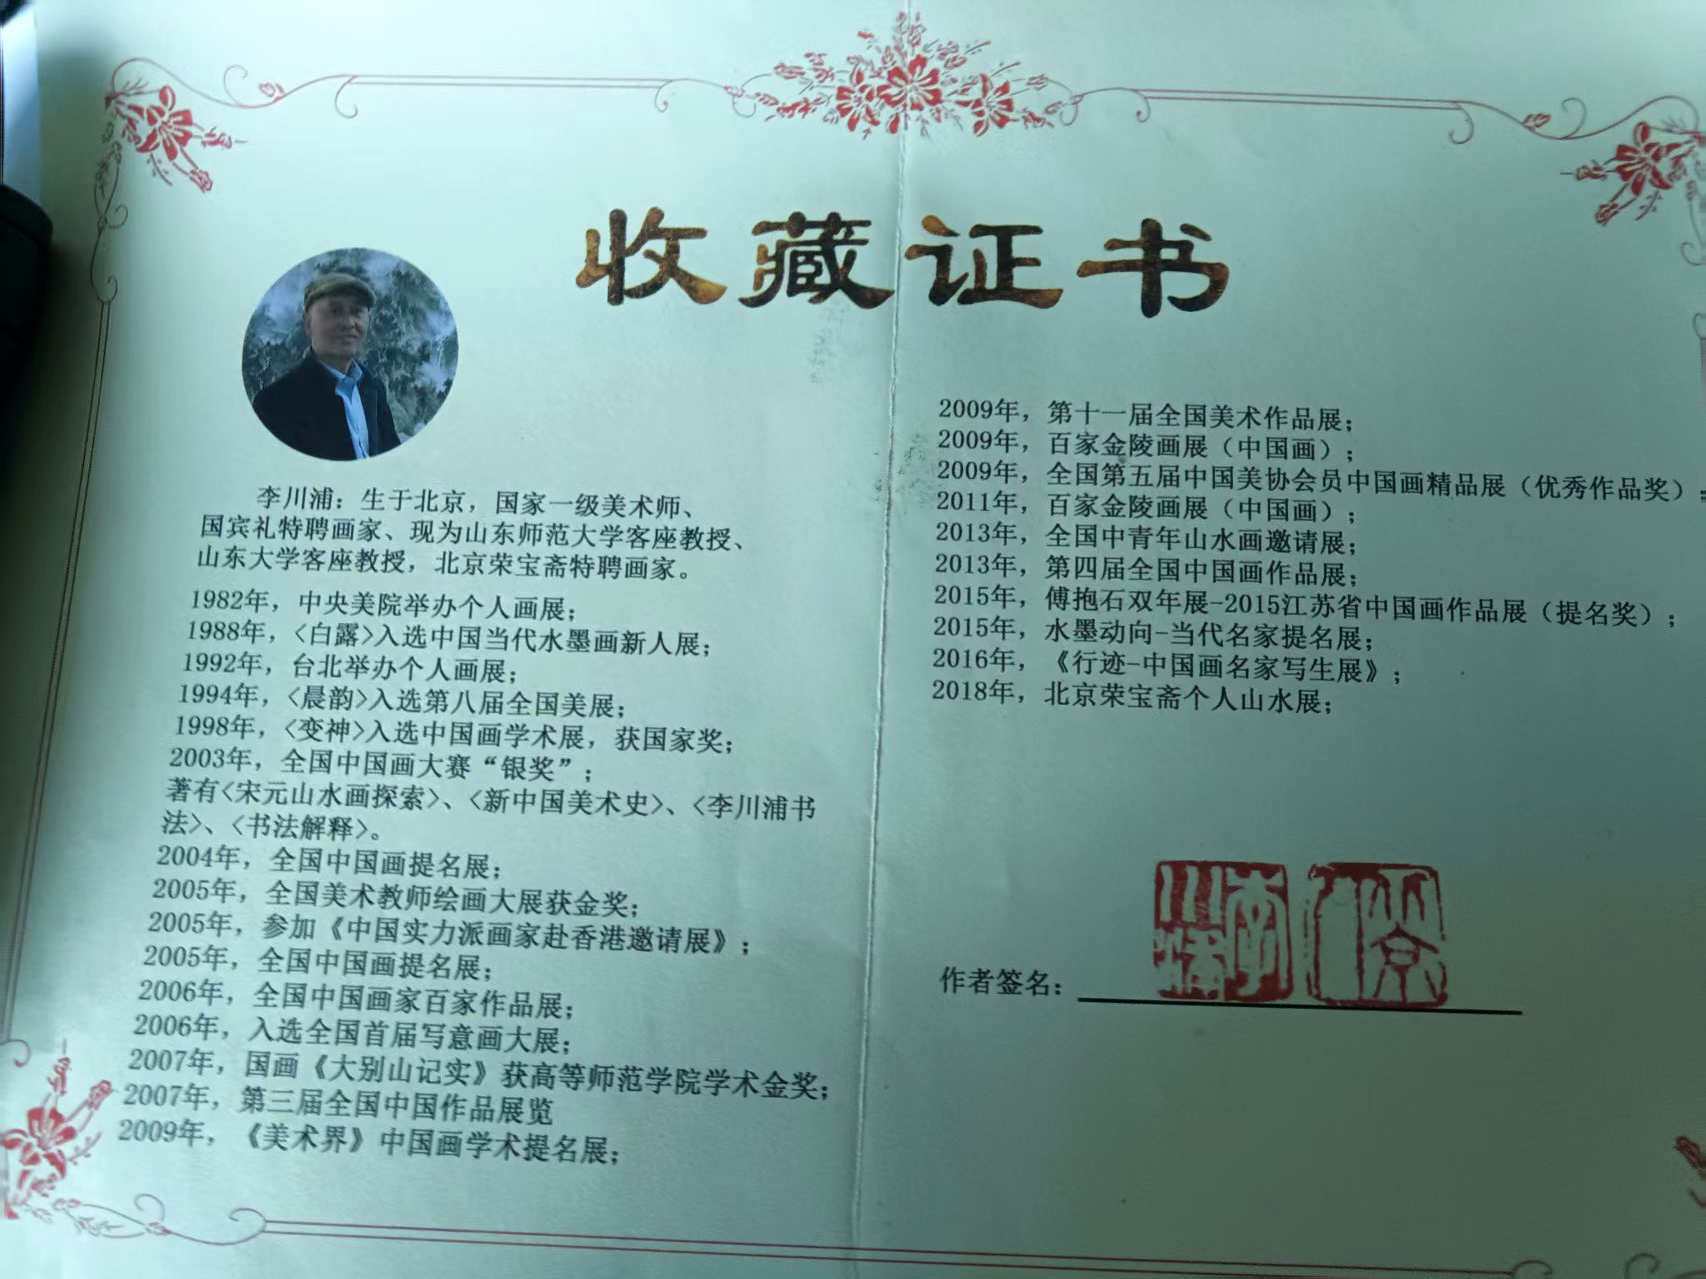 收藏证书
李川浦：生于北京，国家一级美术师、
国宾礼特聘画家、现为山东师范大学客座教授、
山东大学客座教授，北京荣宝斋特聘画家。
1982年，中央美院举办个人画展；
1988年，〈白露〉入选中国当代水墨画新人展；
1992年，台北举办个人画展；
1994年，〈晨韵〉入选第八届全国美展；
1998年，〈变神〉入选中国画学术展，获国家奖；
2003年，全国中国画大赛“银奖”；
著有〈宋元山水画探索〉、〈新中国美术史〉、〈李川浦书
法〉、〈书法解释〉。
2004年，全国中国画提名展；
2005年，全国美术教师绘画大展获金奖；
2005年，参加《中国实力派画家赴香港邀请展》；
2005年，全国中国画提名展；
2006年，全国中国画家百家作品展；
2006年，入选全国首届写意画大展；
2007年，国画《大别山记实》获高等师范学院学术金奖；
2007年，第三届全国中国作品展览
2009年，《美术界》中国画学术提名展；
2009年，第十一届全国美术作品展；
2009年，百家金陵画展（中国画）；
2009年，全国第五届中国美协会员中国画精品展（优秀作品奖）；
2011年，百家金陵画展（中国画）；
2013年，全国中青年山水画邀请展；
2013年，第四届全国中国画作品展；
2015年，傅抱石双年展-2015江苏省中国画作品展（提名奖）；
2015年，水墨动向-当代名家提名展；
2016年，《行迹-中国画名家写生展》；
2018年，北京荣宝斋个人山水展；
作者签名：
李川浦